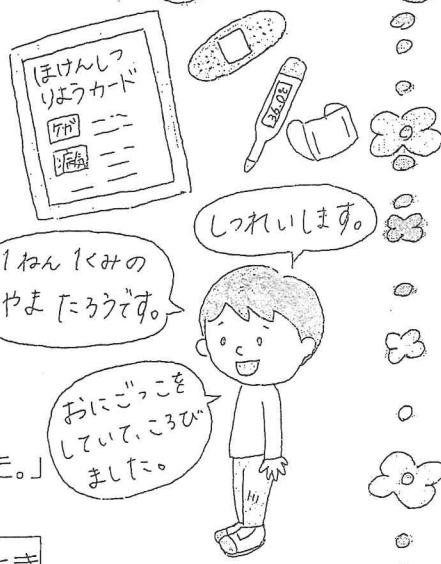 ほけんしつ
りようカード
ケガ
病気
36.0℃
しつれいします。
1ねん 1くみの
やま たろうです。
おにごっこを
していて、ころび
ました。
た。」
とき